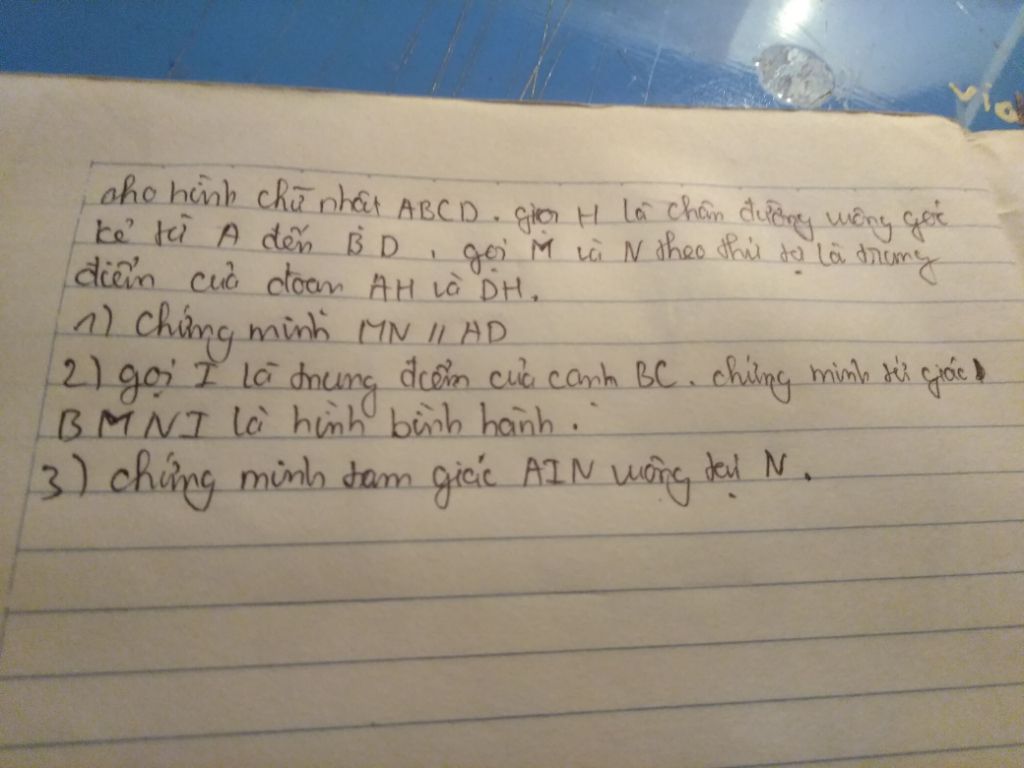 vio
cho hình chữ nhật ABCD. gọi H là chân đường vuông góc
kẻ từ A đến BD, gọi M và N theo thứ tự là trung
điểm của đoan AH và DH.
1) chứng minh MN // AD
2) gọi I là trung điểm của canh BC. chứng minh tứ giác
BMNI là hình bình hành.
3) chứng minh tam giác AIN vuông tại N.